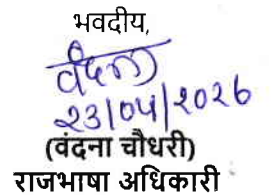 भवदीय,
वंदना
23/04/2026
(वंदना चौधरी)
राजभाषा अधिकारी